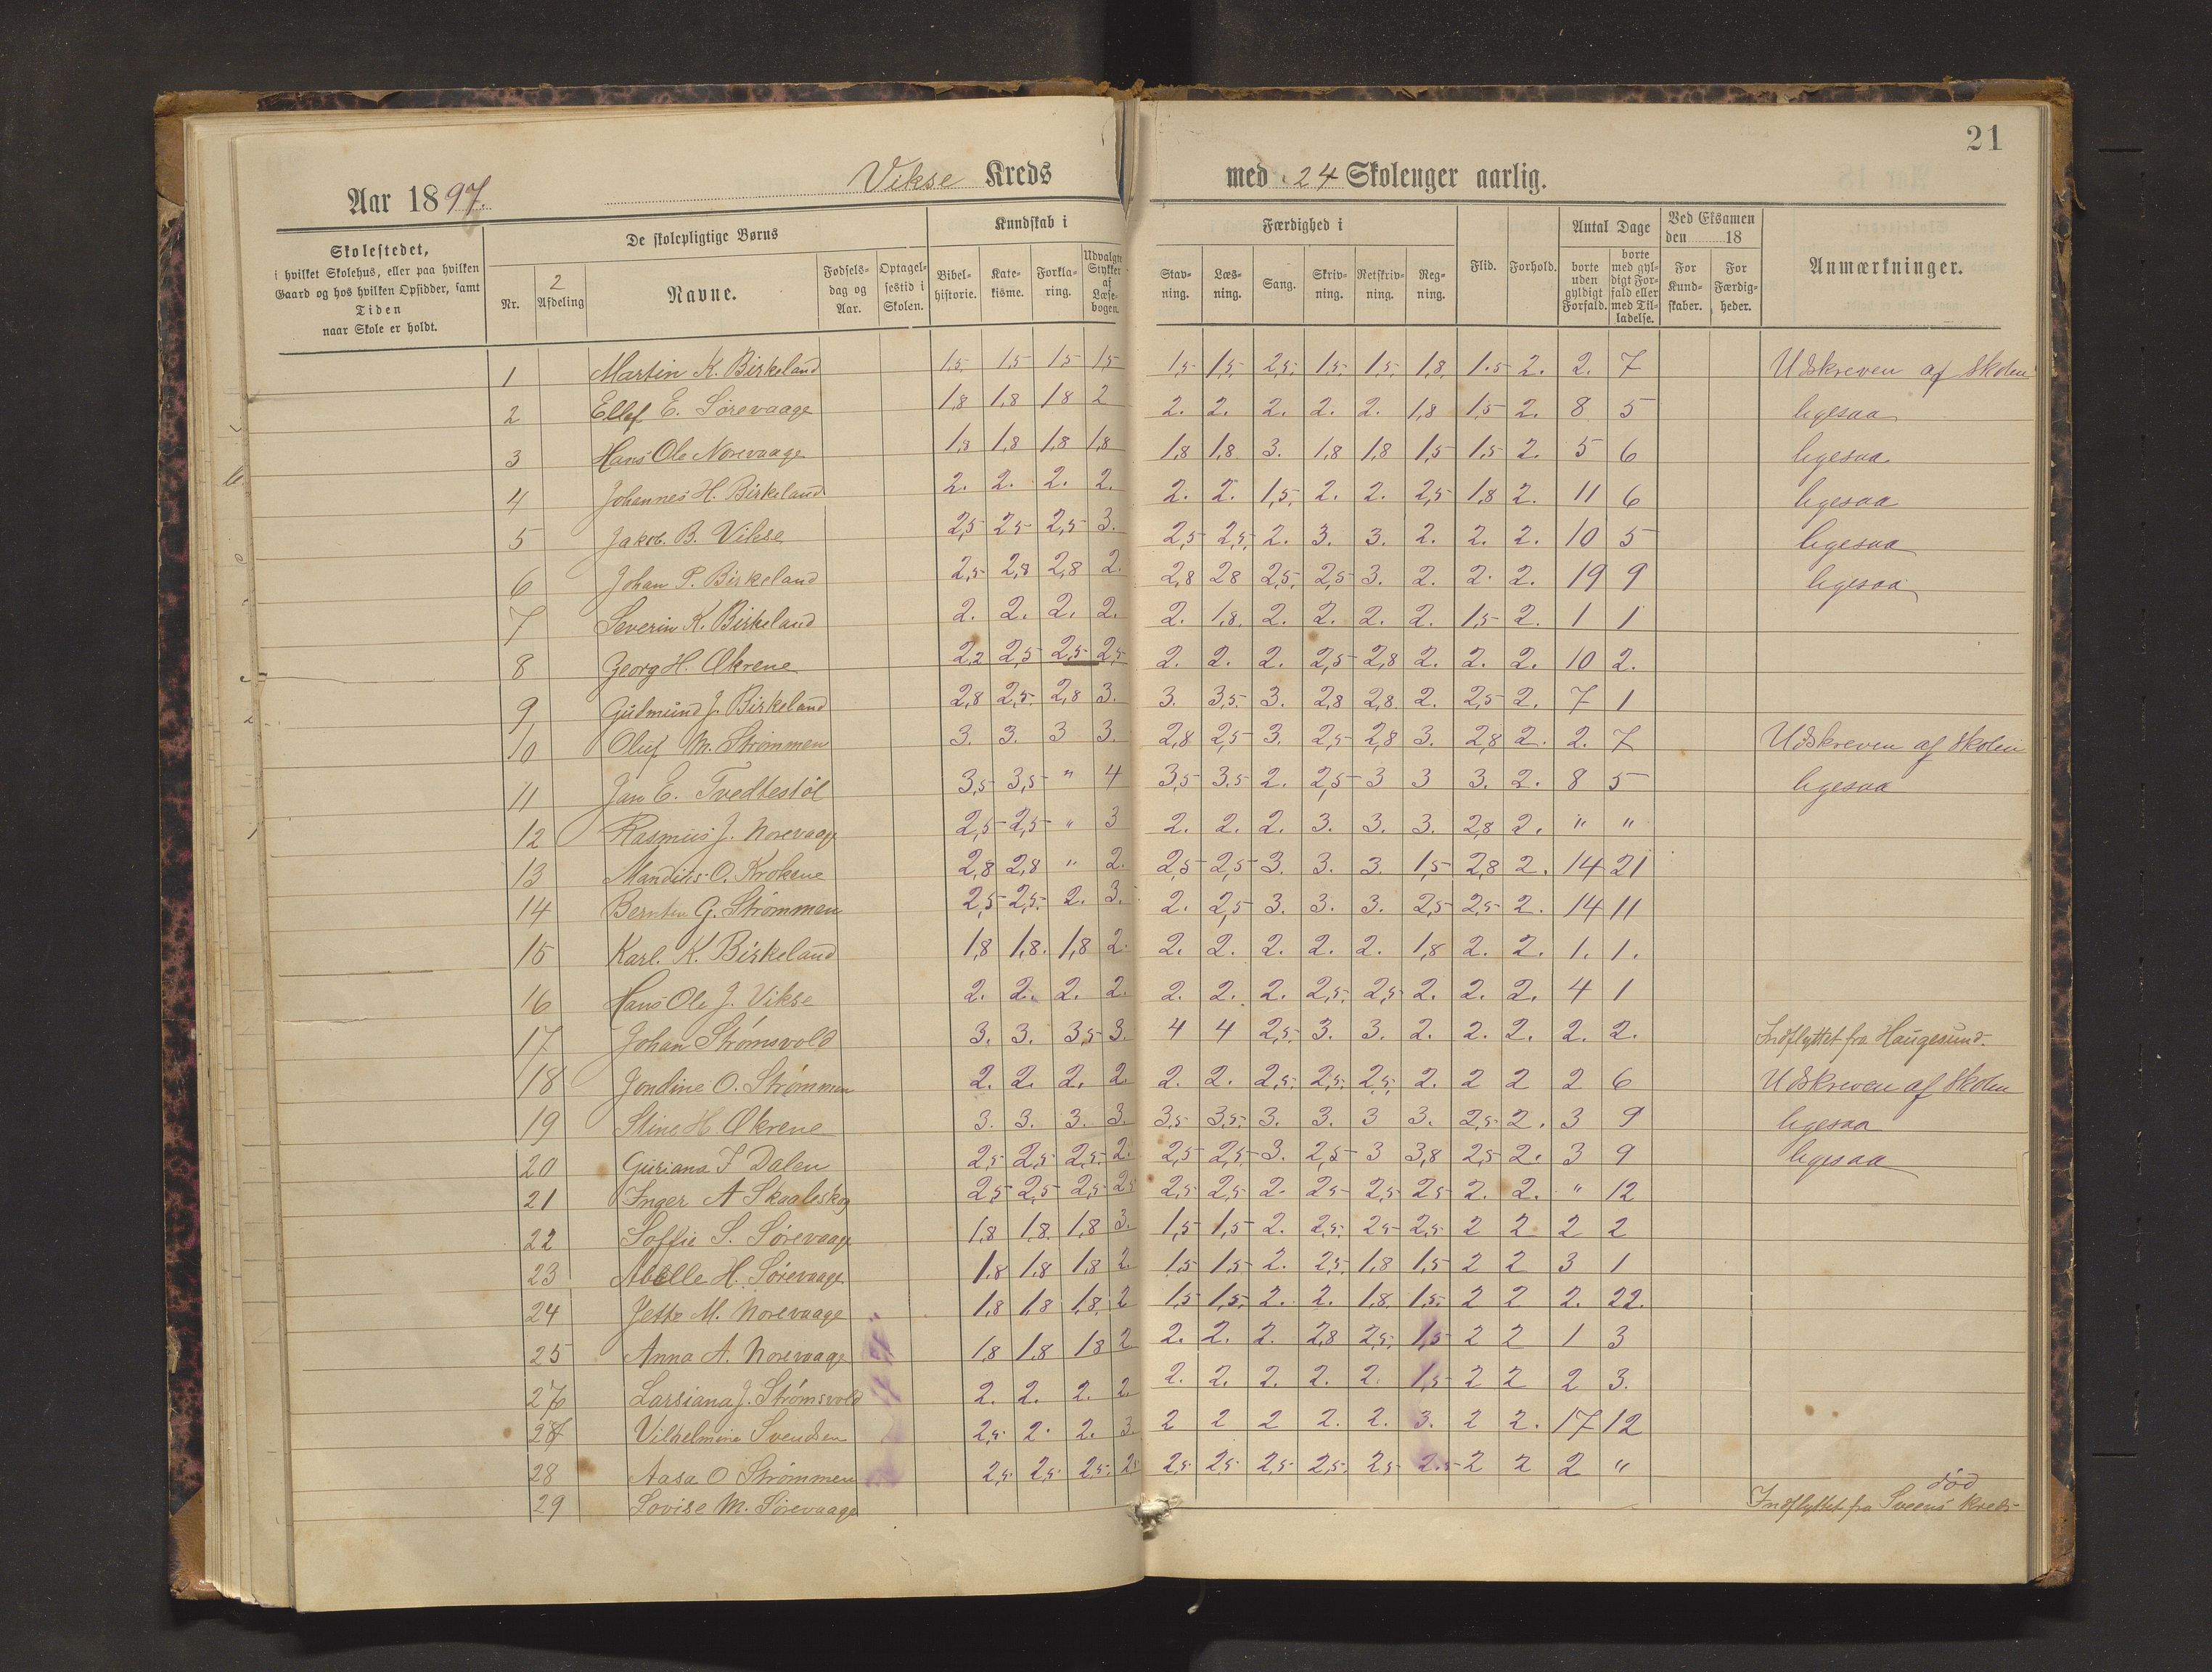 21
Aar 1897. Vikse Kreds med 24 Skoleuger aarlig.
Skolestedet, i hvilket Skolehus, eller paa hvilken Gaard og hos hvilken Opsidder, samt Tiden naar Skole er holdt.
De skolepligtige Børns
Nr. 2 Afdeling Navne. Fødsels-dag og Aar. Optagel-sestid i Skolen.
Kundskab i
Bibel-historie. Kate-kisme. Forkla-ring. Udvalgte Stykker af Læse-bogen.
Færdighed i
Stav-ning. Læs-ning. Sang. Skriv-ning. Retskriv-ning. Reg-ning.
Flid. Forhold.
Antal Dage
borte uden gyldigt Forfald. borte med gyl-digt For-fald eller med Til-ladelse.
Ved Eksamen den 18
For Kund-skaber. For Færdig-heder.
Anmærkninger.
1 Martin K. Birkeland 1,5 1,5 1,5 1,5 1,5 1,5 2,5 1,5 1,5 1,8 1.5 2. 2. 7 Udskreven af Skolen
2 Ellef E. Sørevaage 1,8 1,8 1,8 2 2. 2. 2. 2. 2. 1,8 1,5 2. 8 5 ligesaa
3 Hans Ole Norevaage 1,8 1,8 1,8 1,8 1,8 1,8 3. 1,8 1,8 1,5 1,5 2. 5 6 ligesaa
4 Johannes H. Birkeland 2. 2. 2. 2. 2. 2. 1,5 2. 2. 2,5 1,8 2. 11 6 ligesaa
5 Jakob. B. Vikse 2,5 2,5 2,5 3. 2,5 2,5 2. 3. 3. 2. 2. 2. 10 5 ligesaa
6 Johan P. Birkeland 2,5 2,8 2,8 2. 2,8 2,8 2,5 2,5 3. 2. 2. 2. 19 9 ligesaa
7 Severin K. Birkeland 2. 2. 2. 2. 2. 1,8 2. 2. 2. 2. 1,5 2. 1 1
8 Georg H. Økrene 2,2 2,5 2,5 2,5 2. 2. 2. 2,5 2,8 2. 2. 2. 10 2.
9 Gudmund J. Birkeland 2,8 2,5 2,8 3. 3. 3,5 3. 2,8 2,8 2. 2,5 2. 7 1
10 Oluf M. Strømmen 3. 3. 3 3. 2,8 2,5 3. 2,5 2,8 3. 2,8 2. 2. 7 Udskreven af Skolen
11 Jan E. Tvedtestøl 3,5 3,5 " 4 3,5 3.5 2. 2,5 3 3 3. 2. 8 5 ligesaa
12 Rasmus J. Norevaage 2,5 2,5 " 3 2. 2. 2. 3. 3. 3. 2,8 2. " "
13 Mandius O. Krokene 2,8 2,8 " 2. 2,5 2,5 3. 3. 3. 1,5 2,8 2. 14 21
14 Berntin G. Strømmen 2,5 2,5 2. 3. 2. 2,5 3. 3. 3. 2,5 2,5 2. 14 11
15 Karl. K. Birkeland 1,8 1,8. 1,8 2. 2. 2. 2. 2. 2. 1,8 2. 2. 1. 1.
16 Hans Ole J. Vikse 2. 2. 2. 2. 2. 2. 2. 2,5 2,5 2. 2. 2. 4 1
17 Johan Strømsvold 3. 3. 3,5 3. 4 4 2,5 3. 3. 2. 2. 2. 2. 2. Indflyttet fra Haugesund.
18 Jondine O. Strømmen 2. 2. 2. 2. 2. 2. 2,5 2,5 2,5 2. 2 2 2 6 Udskreven af Skolen
19 Stine H. Økrene 3. 3. 3. 3. 3,5 3,5 3. 3. 3 3. 2,5 2. 3 9 ligesaa
20 Guriana I Dalen 2,5 2,5 2,5 2. 2,5 2,5 3. 2,5 3 3,8 2,5 2. 3 9 ligesaa
21 Inger A Skaaleskog 2,5 2,5 2,5 2,5 2,5 2,5 2. 2,5 2,5 2,5 2. 2. " 12
22 Soffie S. Sørevaage 1,8 1,8 1,8 3. 1,5 1,5 2. 2,5 2,5 2,5 2 2 2 2
23 Abelle H. Sørevaage 1,8 1,8 1,8 2. 1,5 1,5 2. 2,5 1,8 1,5 2 2 3 1
24 Jette M. Norevaage 1,8 1,8 1,8 2 1,5 1,5 2. 2. 1,8 1,5 2 2 2. 22.
25 Anna A. Norevaage 1,8 1,8 1,8 2 2. 2. 2. 2,8 2,5 1,5 2 2 1 3
Larsiana J. Strømsvold 2. 2. 2. 2. 2. 2. 2. 2. 2. 1,5 2 2 2 3.
Vilhelmine Svendsen 2,5 2. 2. 3. 2 2 2 2. 2. 3. 2 2. 17 12
28 Aasa O Strømmen 2,5 2,5 2,5 2,5 2,5 2,5 2,5 2,5 2,5 2.5 2 2 2 "
død
29 Lovise M. Sørevaage Indflyttet fra Sveens Kreds